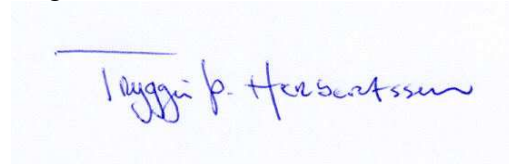 Tryggvi Þ. Herbertsson